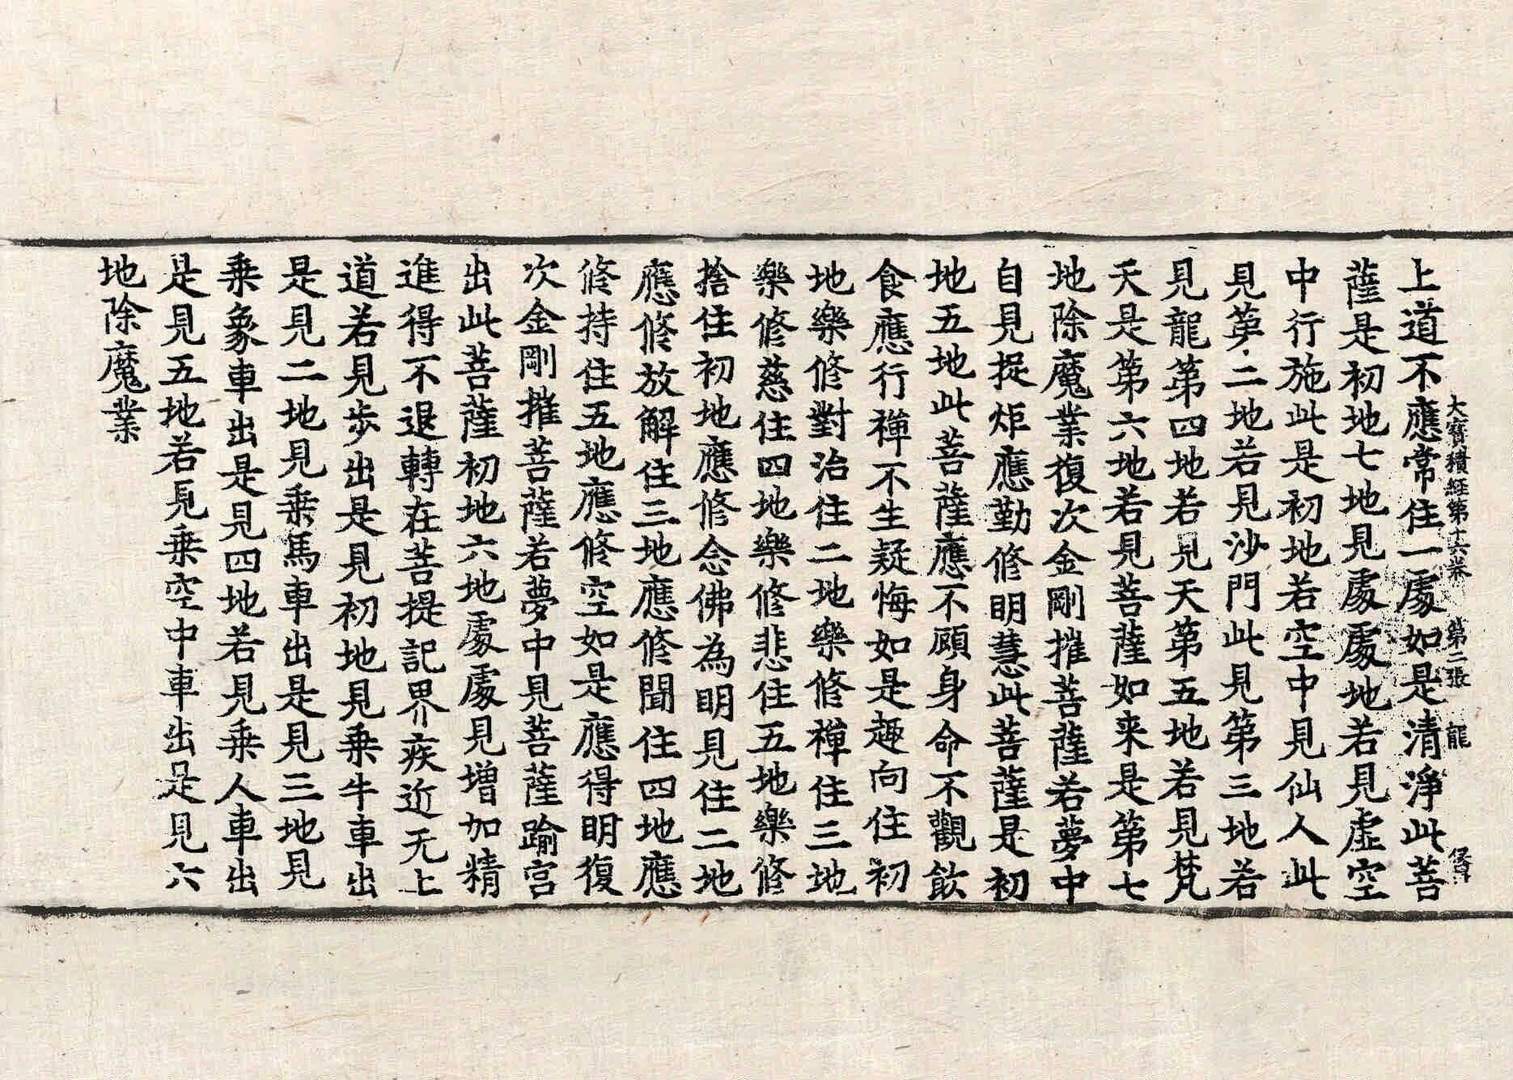 大寶積経第十六卷 第二張 龍
上道不應常住一處如是清淨此菩
薩是初地七地見處處地若見虛空
中行施此是初地若空中見仙人此
見第二地若見沙門此見第三地若
見龍第四地若見天第五地若見梵
天是第六地若見菩薩如来是第七
地除魔業復次金剛摧菩薩若夢中
自見捉炬應勤修明慧此菩薩是初
地五地此菩薩應不顧身命不觀飲
食應行禪不生疑悔如是趣向住初
地樂修對治住二地樂修禪住三地
樂修慈住四地樂修悲住五地樂修
捨住初地應修念佛為明見住二地
應修放解住三地應修聞住四地應
修持住五地應修空如是應得明復
次金剛摧菩薩若夢中見菩薩踰宮
出此菩薩初地六地處處見增加精
進得不退轉在菩提記界疾近无上
道若見步出是見初地見乗牛車出
是見二地見乗馬車出是見三地見
乗象車出是見四地若見乗人車出
是見五地若見乗空中車出是見六
地除魔業